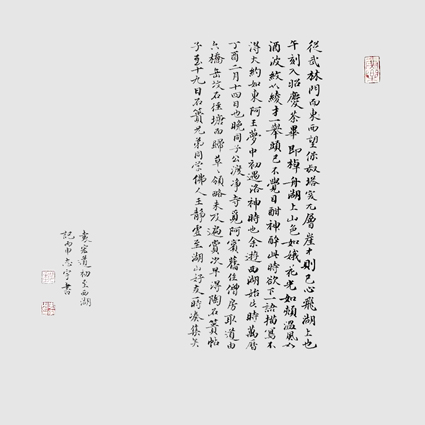 從武林門而東西望保叔塔突兀層崖中則已心飛湖上也
午刻入昭慶茶畢即棹舟湖上山色如娥花光如頰溫風如
酒波紋如綾才一舉頭已不覺目酣神醉此時欲下一語描寫不
得大約如東阿王夢中初遇洛神時也余遊西湖始此時萬曆
丁酉二月十四日也晚同子公渡淨寺覓阿賓舊住僧房取道由
六橋岳坟石徑塘而歸草々領略未及遍賞次早得陶石簣帖
子至十九日石簣兄弟同學佛人王靜虛至湖山好友一時湊集矣
袁宏道初至西湖
記丙申志宇書